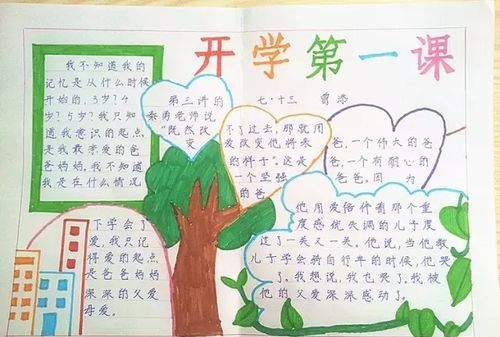 开学第一课
七·十三
我不知道我的
记忆是从什么时候
开始的,3岁?4
岁?5岁?我只知
道我意识的起点,
是我最亲爱的爸
爸妈妈。我不知道
我是在什么情况
下学会了
爱,我只记
得爱的起点,
是爸爸妈妈
深深的父爱
母爱。
第三讲的
秦勇老师说
“既然改
变
不了过去,那就用
爱改变他将来
的样子”。这是
一个坚强
的爸
爸,一个伟大的爸
爸,一个有耐心的
爸爸。因为
他用爱陪伴着那个重
度感统失调的儿子度
过了一关又一关。他说,当他教
儿子学会骑自行车的时候,他哭
了。我想说,我也哭了。我被
他的父爱深深感动了。